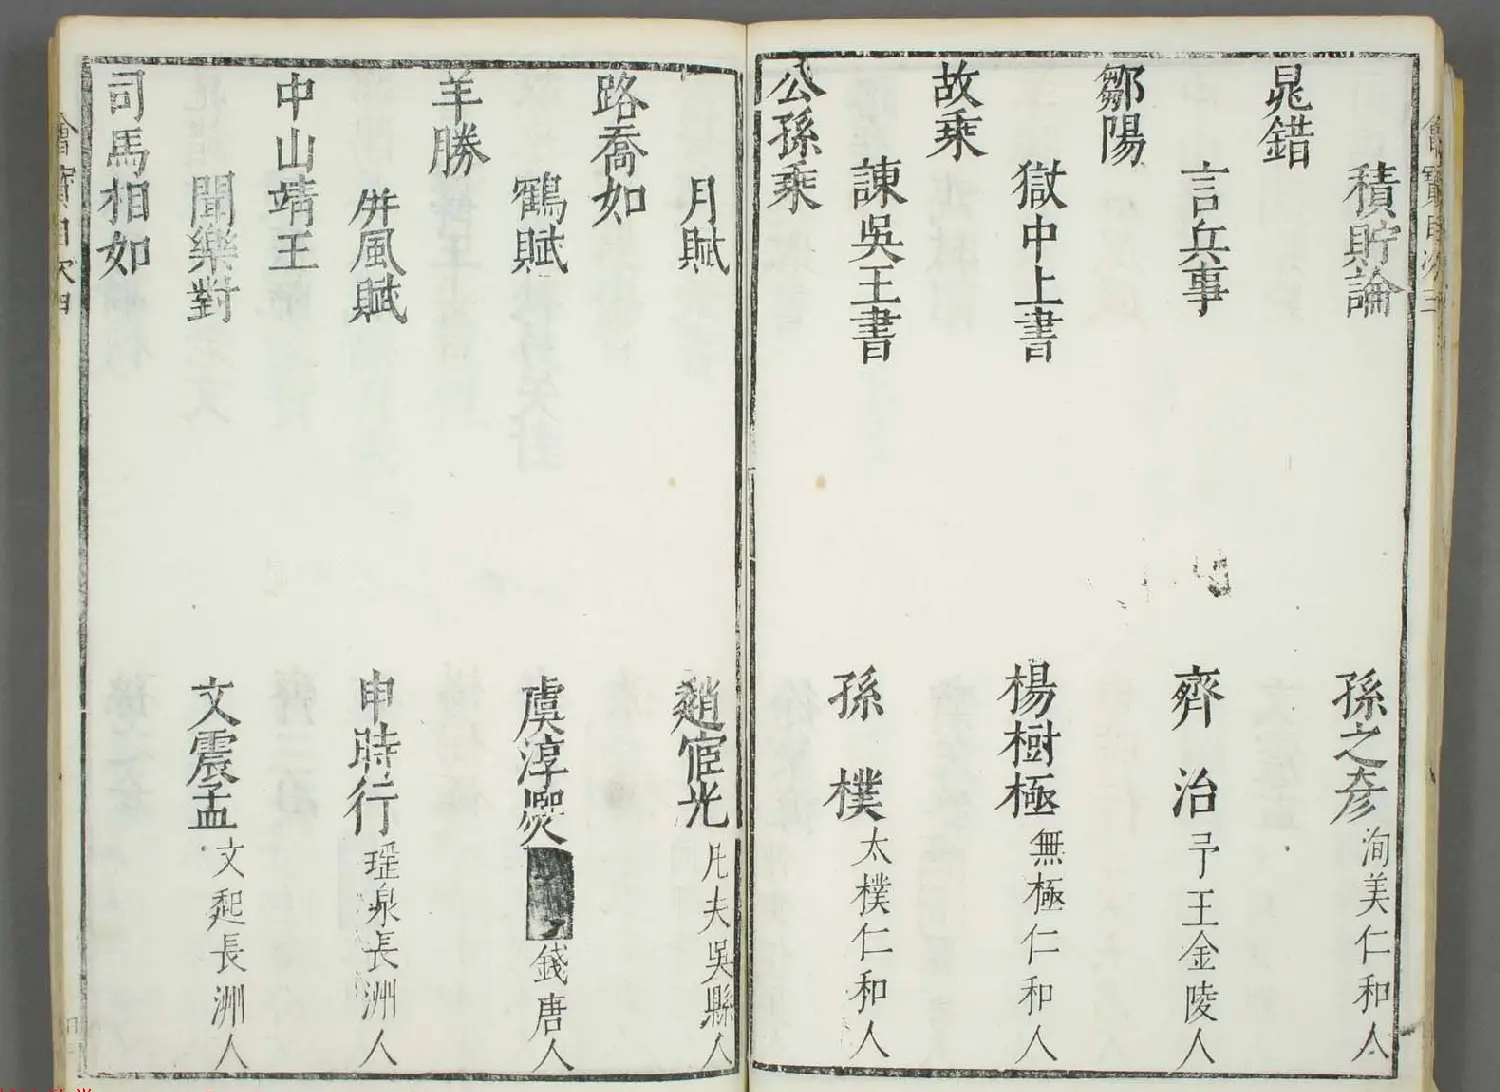 積貯論 孫之彦 洵美仁和人
晁錯
言兵事 齊治 予王金陵人
鄒陽
獄中上書 楊樹極 無極仁和人
故乘
諌吳王書 孫樸 太樸仁和人
公孫乘
月賦 趙宧光 凡夫吳縣人
路喬如
鶴賦 虞淳熈 錢唐人
羊勝
屏風賦 申時行 瑶泉長洲人
中山靖王
聞樂對 文震孟 文起長洲人
司馬相如